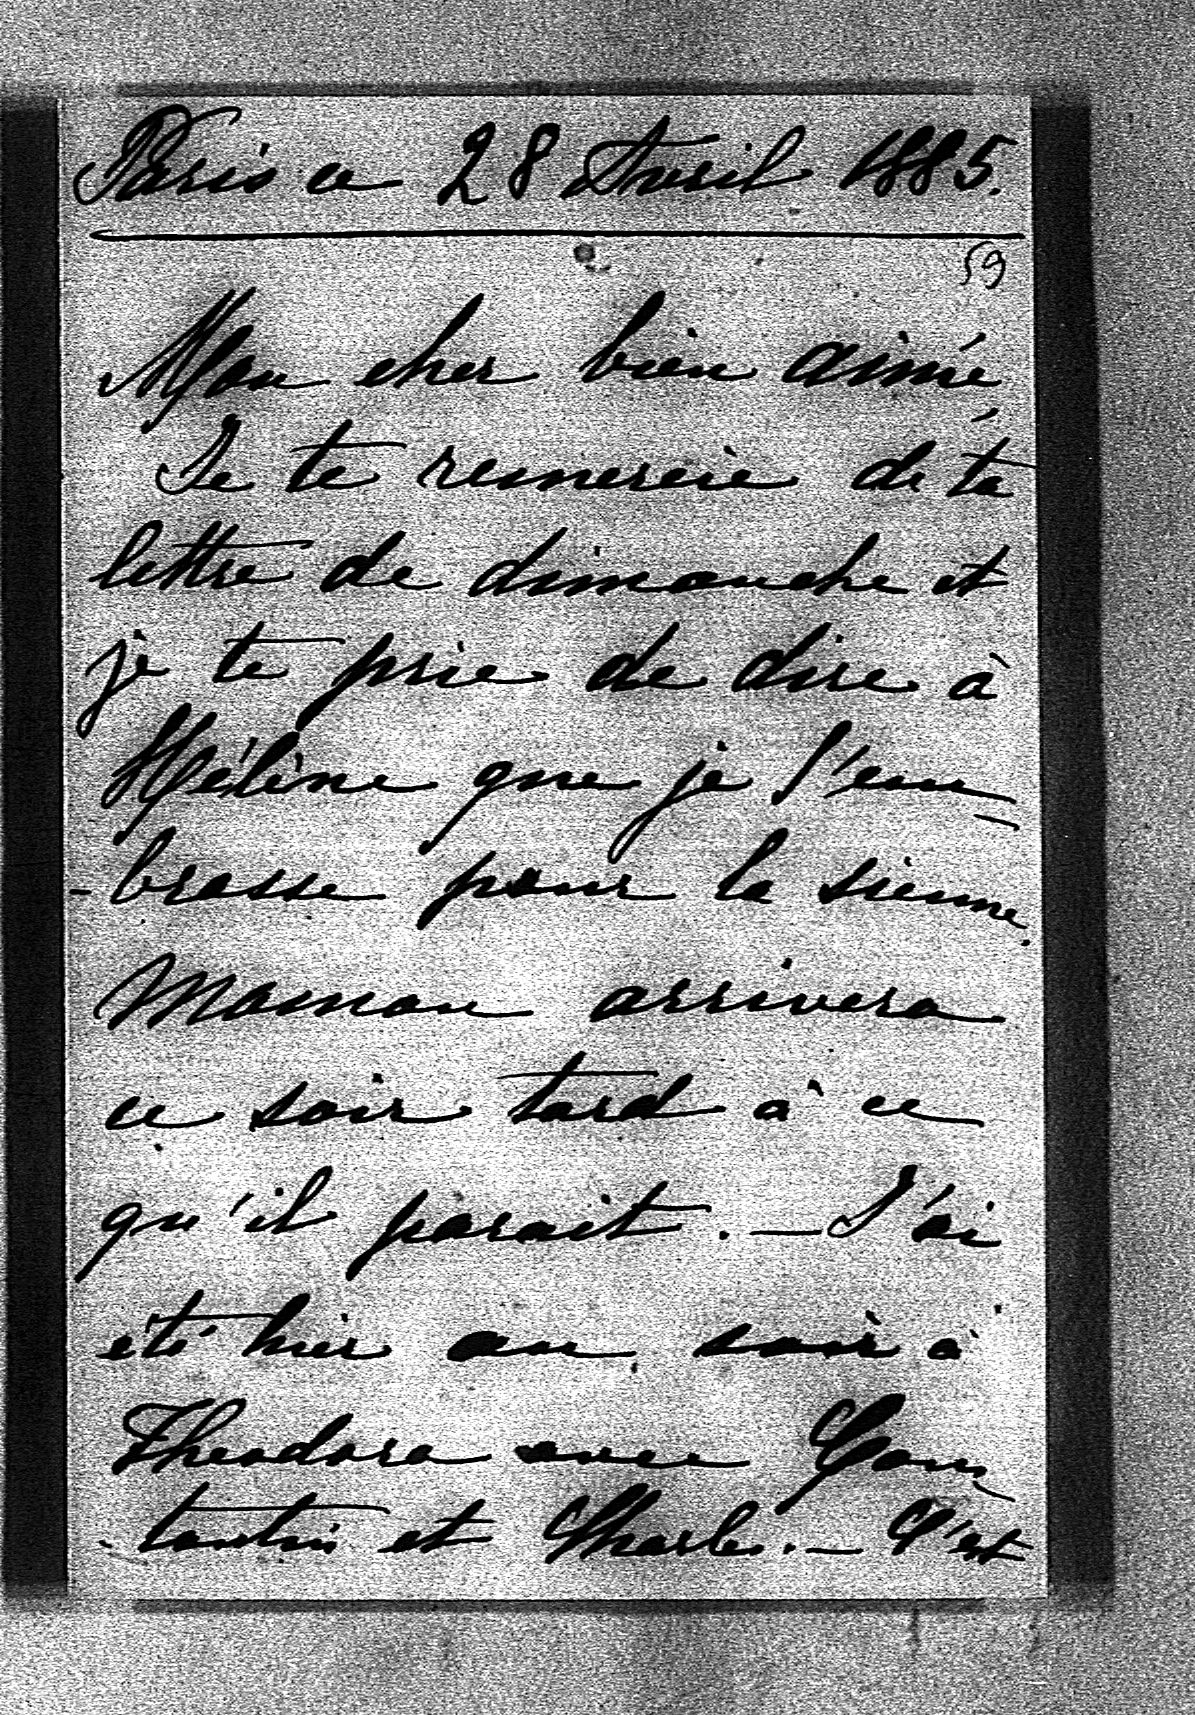 Paris ce 28 Avril 1885.
59
Mon cher bien aimé,
Je te remercie de ta
lettre de dimanche et
je te prie de dire à
Hélène que je l'em-
-brasse pour la sienne.
Maman arrivera
ce soir tard à ce
qu'il parait. — J'ai
été hier au soir à
Théodora avec Cons-
-tantin et Charles. — C'est